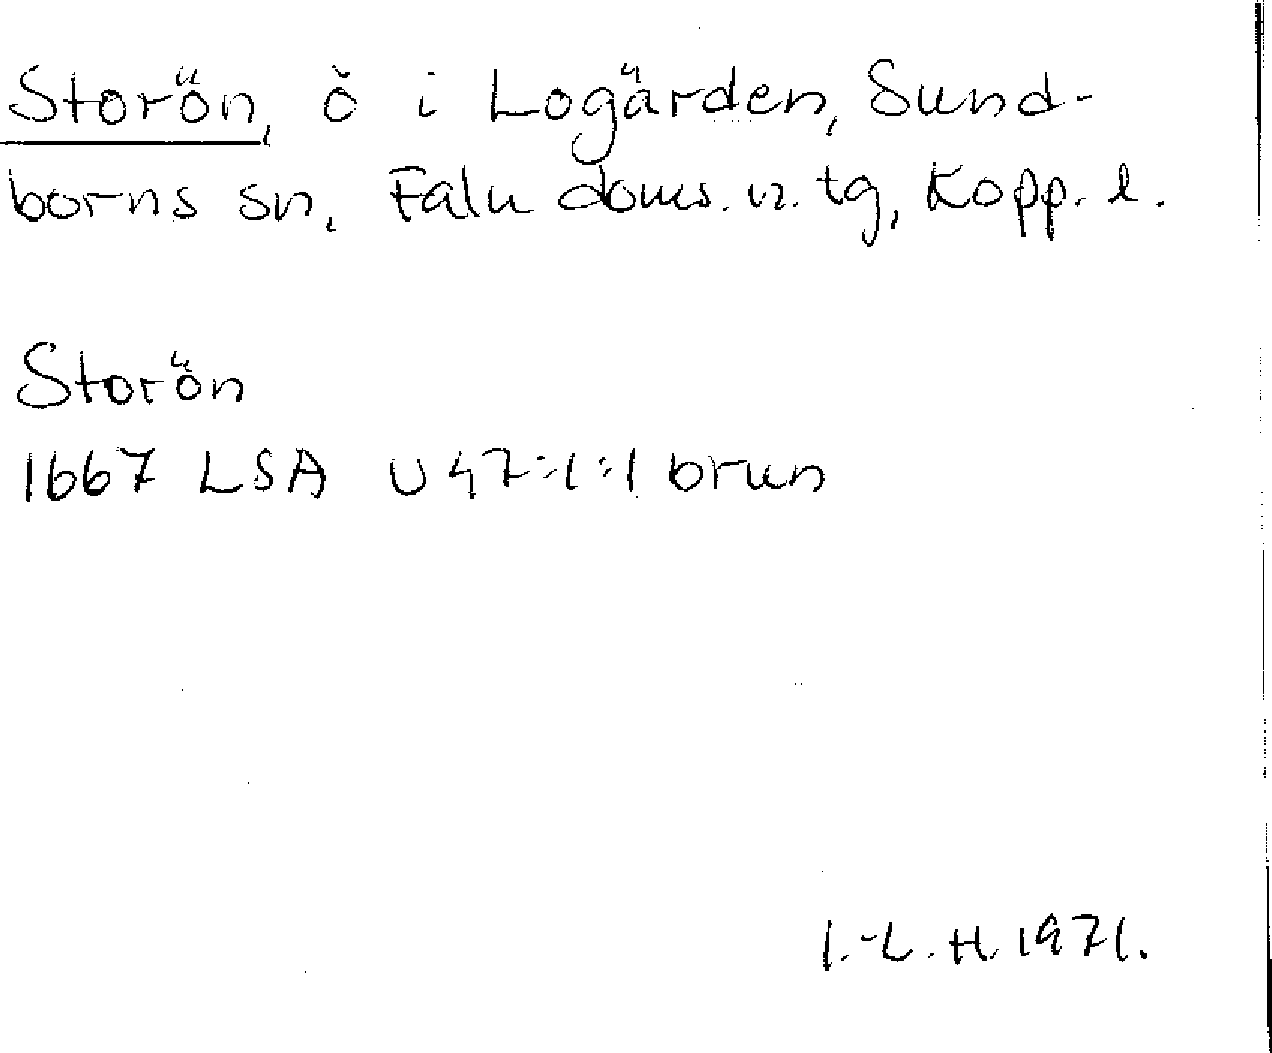 Storön, ö i Logärden, Sund-
borns sn, Falu doms. o. tg, Kopp. l.
Storön
1667 LSA U 47:1:1 brun
I.-L. H. 1971.